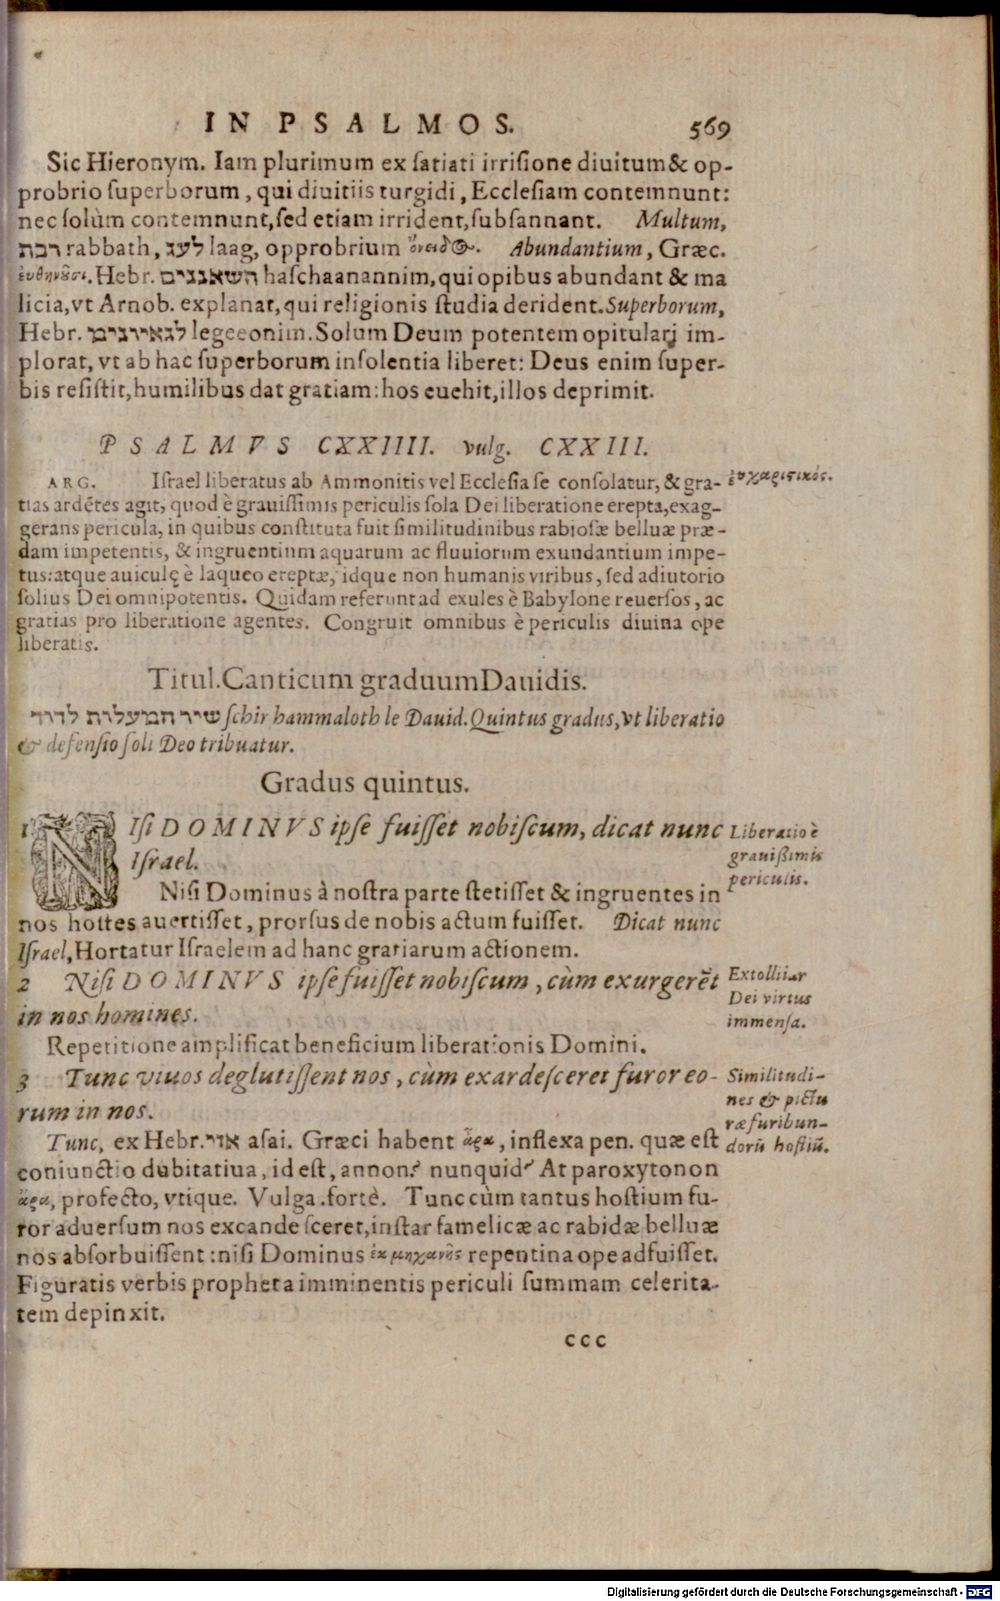 IN PSALMOS. 569
Sic Hieronym. Iam plurimum ex satiati irrisione diuitum & op-
probrio superborum, qui diuitiis turgidi, Ecclesiam contemnunt:
nec solùm contemnunt, sed etiam irrident, subsannant. Multum,
רבת rabbath, לעג laag, opprobrium ὄνειδος. Abundantium, Græc.
εὐθηνοῦσι. Hebr. השאננים haschaanannim, qui opibus abundant & ma
licia, vt Arnob. explanat, qui religionis studia derident. Superborum,
Hebr. לגאיונים legeeonim. Solum Deum potentem opitulari im-
plorat, vt ab hac superborum insolentia liberet: Deus enim super-
bis resistit, humilibus dat gratiam: hos euehit, illos deprimit.
PSALMVS CXXIIII. vulg. CXXIII.
ARG. Israel liberatus ab Ammonitis vel Ecclesia se consolatur, & gra-
εὐχαριστικός.
tias ardētes agit, quod è grauissimis periculis sola Dei liberatione erepta, exag-
gerans pericula, in quibus constituta fuit similitudinibus rabiosæ belluæ præ-
dam impetentis, & ingruentium aquarum ac fluuiorum exundantium impe-
tus: atque auiculę è laqueo ereptæ, idque non humanis viribus, sed adiutorio
solius Dei omnipotentis. Quidam referunt ad exules è Babylone reuersos, ac
gratias pro liberatione agentes. Congruit omnibus è periculis diuina ope
liberatis.
Titul. Canticum graduum Dauidis.
שיר המעלות לדוד schir hammaloth le Dauid. Quintus gradus, vt liberatio
& defensio soli Deo tribuatur.
Gradus quintus.
1 NIsi DOMINVS ipse fuisset nobiscum, dicat nunc
Israel.
Liberatio è
grauißimis
periculis.
Nisi Dominus à nostra parte stetisset & ingruentes in
nos hostes auertisset, prorsus de nobis actum fuisset. Dicat nunc
Israel, Hortatur Israelem ad hanc gratiarum actionem.
2 Nisi DOMINVS ipse fuisset nobiscum, cùm exurgerēt
in nos homines.
Extollitur
Dei virtus
immensa.
Repetitione amplificat beneficium liberationis Domini.
3 Tunc viuos deglutissent nos, cùm exardesceret furor eo-
rum in nos.
Similitudi-
nes & pictu
ræ furibun-
dorū hostiū.
Tunc, ex Hebr. אזי asai. Græci habent ἆρα, inflexa pen. quæ est
coniunctio dubitatiua, id est, annon? nunquid? At paroxytonon
ἄρα, profecto, vtique. Vulga. fortè. Tunc cùm tantus hostium fu-
ror aduersum nos excandesceret, instar famelicæ ac rabidæ belluæ
nos absorbuissent: nisi Dominus ἐκ μηχανῆς repentina ope adfuisset.
Figuratis verbis propheta imminentis periculi summam celerita-
tem depinxit.
ccc
Digitalisierung gefördert durch die Deutsche Forschungsgemeinschaft - DFG